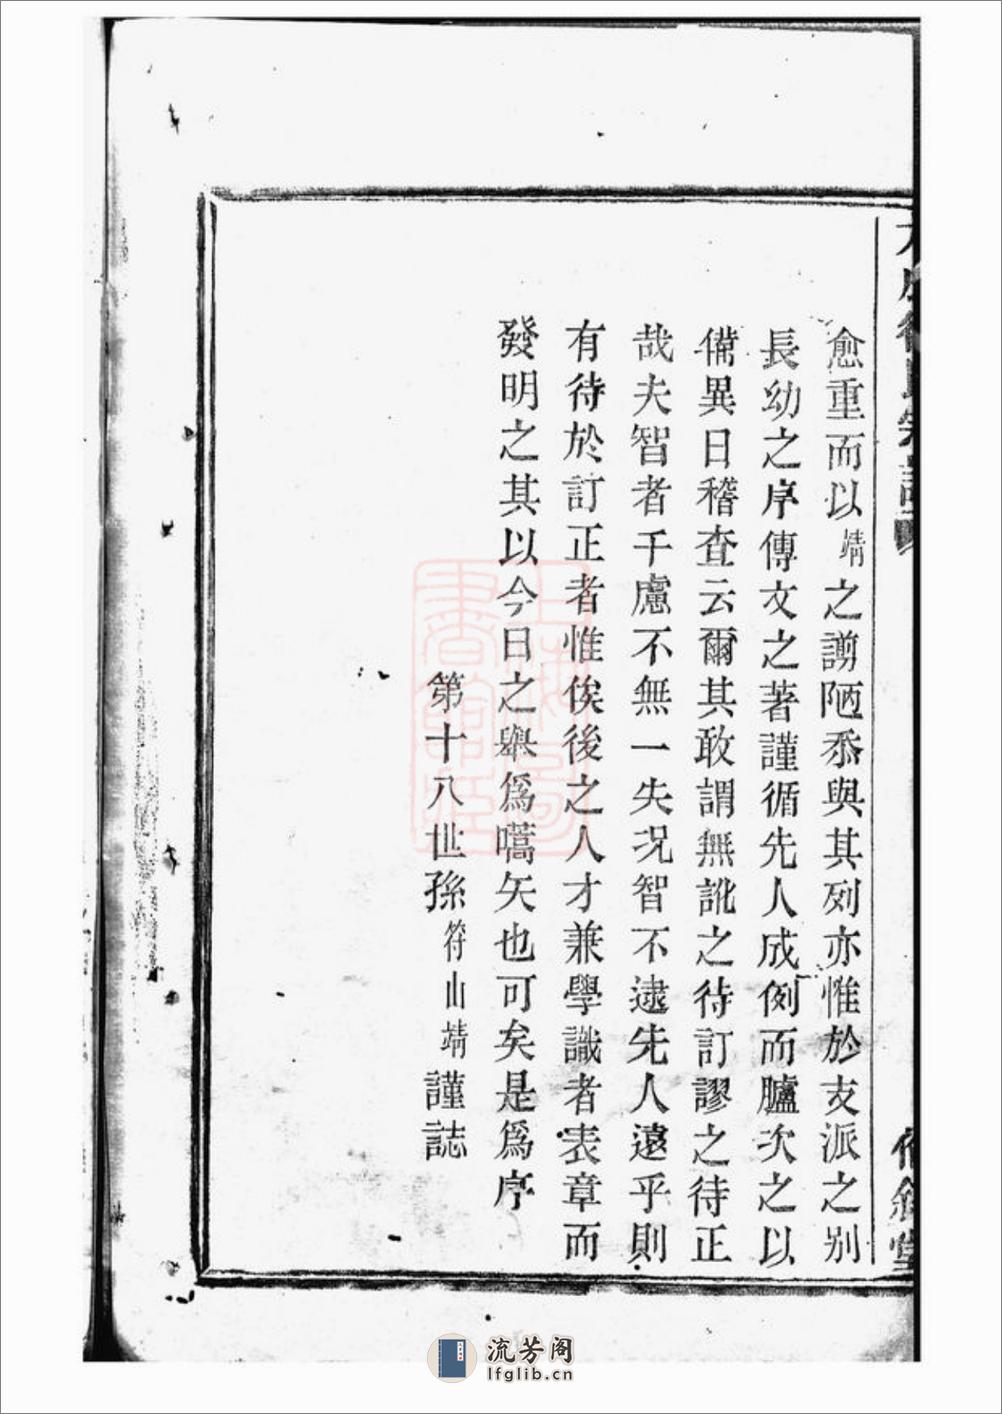 愈重而以靖之謭陋忝與其列亦惟於支派之别
長幼之序傳文之著謹循先人成例而臚次之以
備異日稽查云爾其敢謂無訛之待訂謬之待正
哉夫智者千慮不無一失况智不逮先人遠乎則
有待於訂正者惟俟後之人才兼學識者表章而
發明之其以今日之舉爲嚆矢也可矣是爲序
第十八世孫符山靖謹誌
上海圖書館藏
流芳阁
lfglib.cn